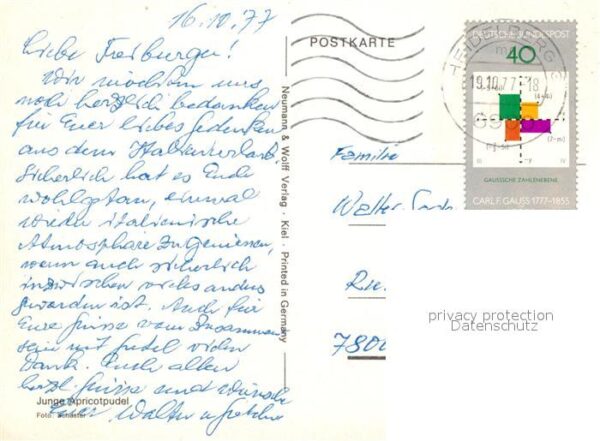 16.10.77
Liebe Freiburger!
Wir möchten uns
noch herzlich bedanken
für Euer liebes Gedenken
aus dem Italienurlaub.
Sicherlich hat es Euch
wohlgetan, einmal
wieder italienische
Atmosphäre zu geniessen,
wenn auch sicherlich
inzwischen vieles anders
geworden ist. Auch für
Eure Grüsse vom Zusammen
sein mit vielen
Dank. Euch allen
herzl. Grüsse und Wünsche
Eure Walter u.
Junge Apricotpudel
Foto: Schäfer
Neumann & Wolff Verlag · Kiel · Printed in Germany
POSTKARTE
DEUTSCHE BUNDESPOST
40
HEIDELBERG
19.10.77-18
GAUSSSCHE ZAHLENEBENE
CARL F. GAUSS 1777-1855
Familie
Walter
7800
privacy protection
Datenschutz